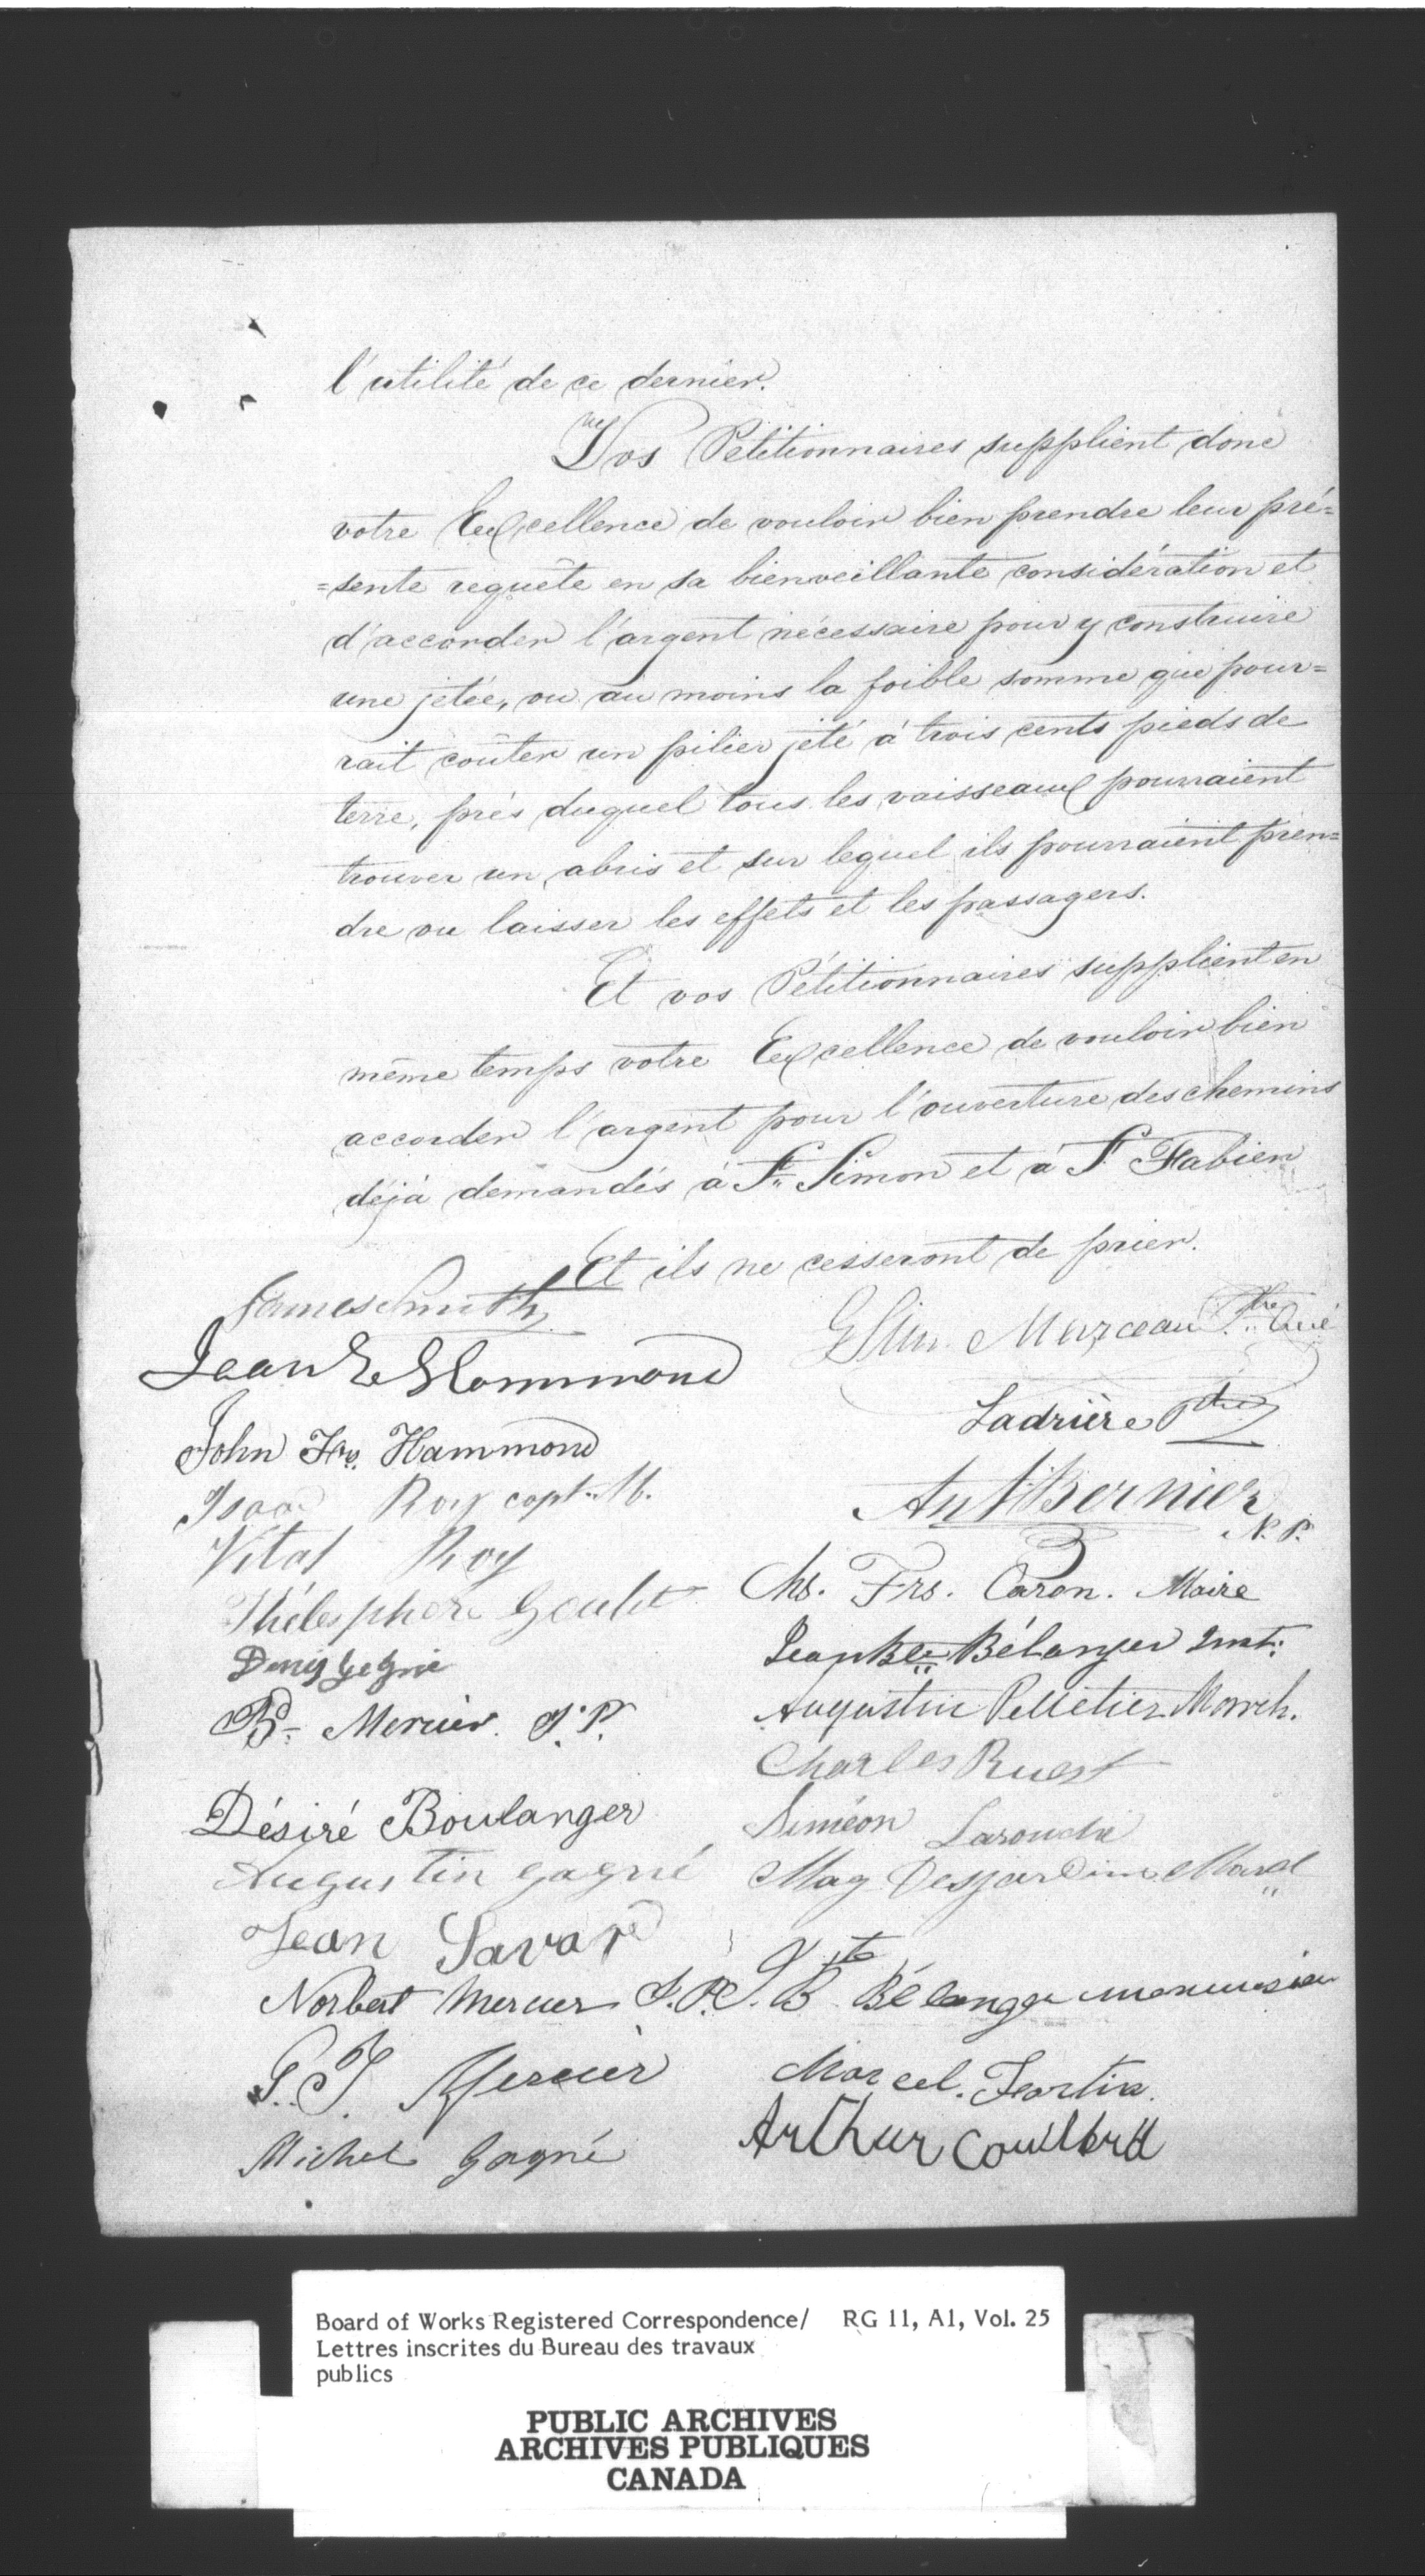 l'utilité de ce dernier.
Vos Petitionnaires supplient donc
votre Excellence de vouloir bien prendre leur pré=
=sente requête en sa bienveillante considération et
d'accorder l'argent nécessaire pour y construire
une jetée, ou au moins la foible somme que pour=
rait coûter un pilier jeté à trois cents pieds de
terre, près duquel tous les vaisseaux pourraient
trouver un abris et sur lequel ils pourraient pren=
dre ou laisser les effets et les passagers.
Et vos Pétitionnaires supplient en
même temps votre Excellence de vouloir bien
accorder l'argent pour l'ouverture des chemins
déjà demandés à St. Simon et à St Fabien
Et ils ne cesseront de prier.
James Smith
Marceau Ptre Curé
Jean Hammond
Ladrière Ptre
John Frs. Hammond
Ant Bernier
N. P.
Isaac Roy capt. M.
Vital Roy
Chs. Frs. Caron. Maire
Thélesphore Goulet
Jean Bte Bélanger Inst.
B. Mercier J. P.
Augustin Pelletier March.
Charles Ruest
Désiré Boulanger
Siméon Larouche
Augustin gagné
Mag Desjardins March
Jean Savard
Norbert Mercier J. P.
J. Bte Bélanger menuisier
Mercier
Marcel Fortin
Michel Gagné
Arthur Couillard
Board of Works Registered Correspondence/ RG 11, A1, Vol. 25
Lettres inscrites du Bureau des travaux
publics
PUBLIC ARCHIVES
ARCHIVES PUBLIQUES
CANADA